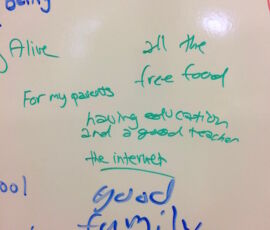 being
Alive
all the
free food
For my parents
having education
and a good teacher
the internet
ool
good
family